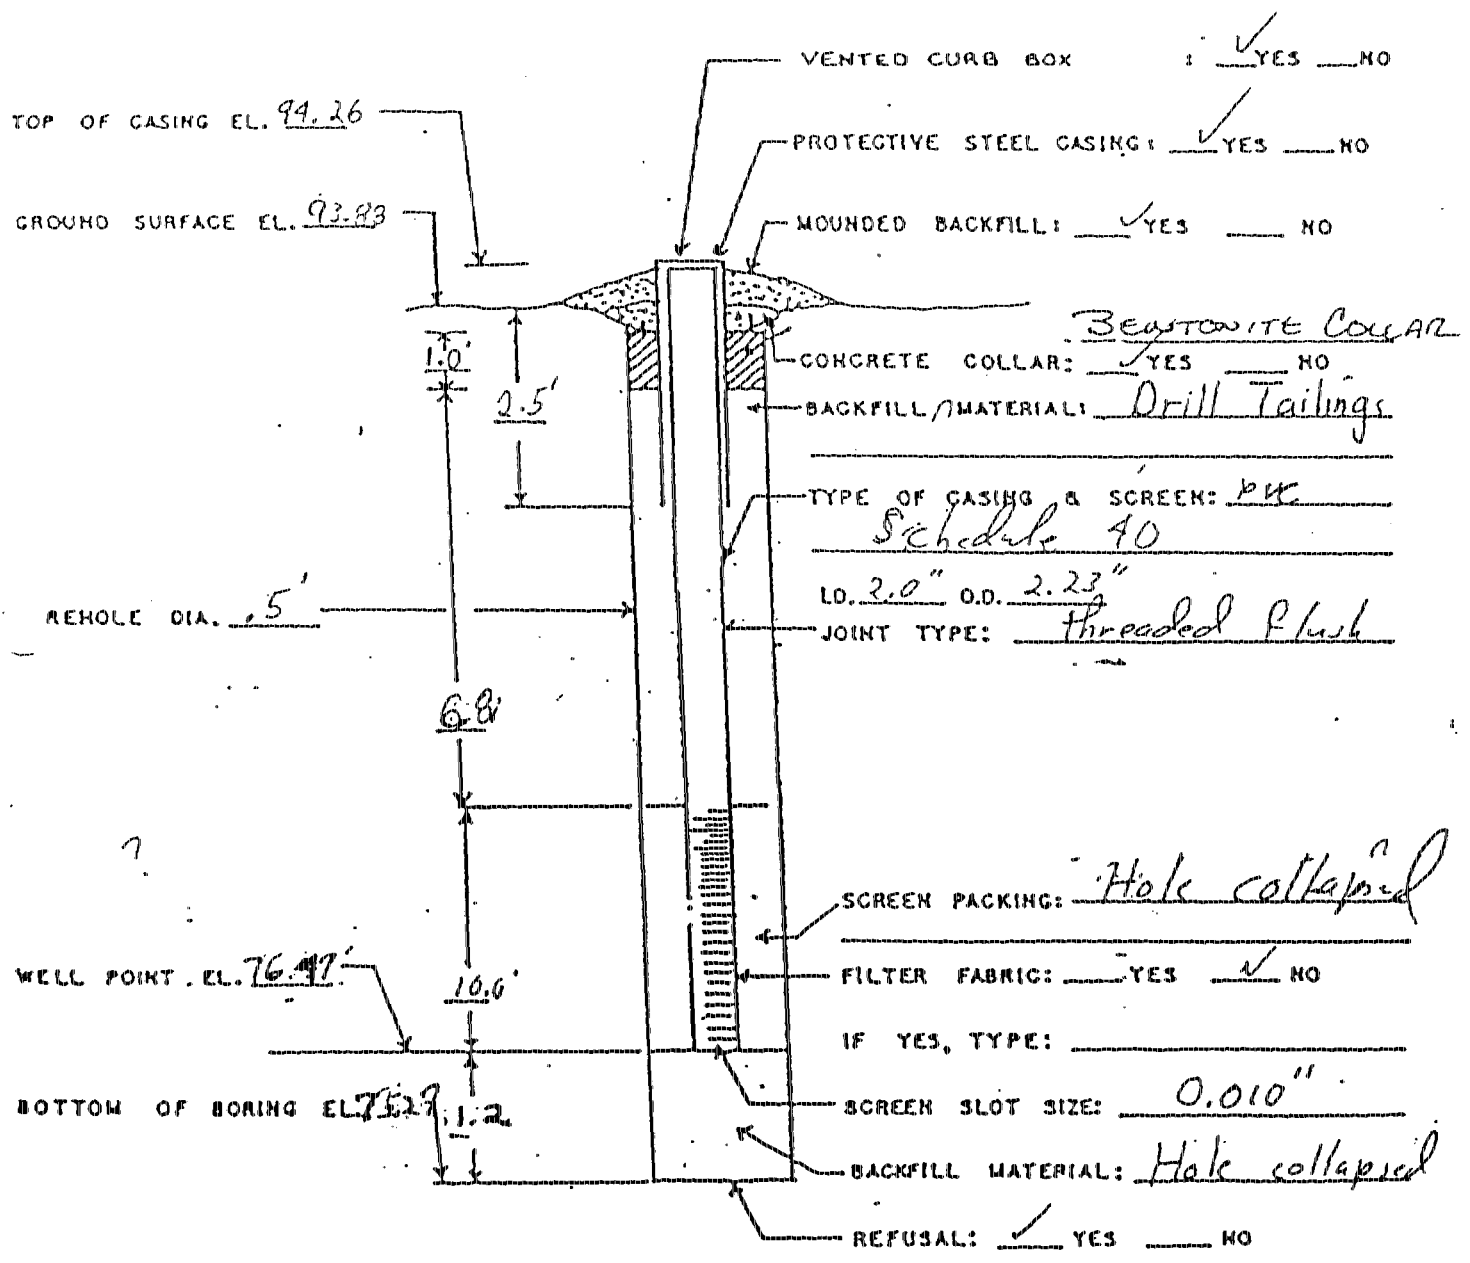 VENTED CURB BOX : ✓ YES ___ NO
TOP OF CASING EL. 94.26
PROTECTIVE STEEL CASING: ✓ YES ___ NO
GROUND SURFACE EL. 93.83
MOUNDED BACKFILL: ✓ YES ___ NO
BENTONITE COLLAR
1.0'
CONCRETE COLLAR: ✓ YES ___ NO
2.5'
BACKFILL MATERIAL: Drill Tailings
TYPE OF CASING & SCREEN: PVC
Schedule 40
I.D. 2.0" O.D. 2.23"
REHOLE DIA. .5'
JOINT TYPE: threaded flush
6.8'
SCREEN PACKING: Hole collapsed
WELL POINT . EL.
FILTER FABRIC: ___ YES ✓ NO
IF YES, TYPE:
BOTTOM OF BORING EL.
1.2
SCREEN SLOT SIZE: 0.010"
BACKFILL MATERIAL: Hole collapsed
REFUSAL: ✓ YES ___ NO